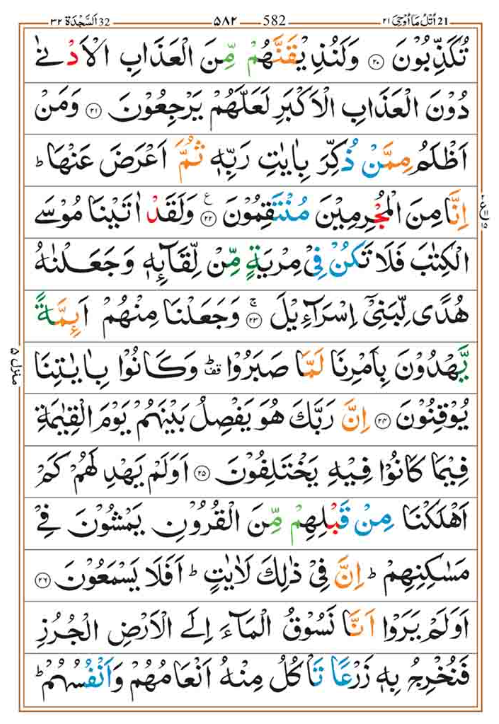 21 اُتْلُ مَآ اُوْحِیَ ۲۱ 582 ۵۸۲ 32 اَلسَّجْدَة ۳۲
تُكَذِّبُوْنَ ۝۲۰ وَلَنُذِيْقَنَّهُمْ مِّنَ الْعَذَابِ الْاَدْنٰى
دُوْنَ الْعَذَابِ الْاَكْبَرِ لَعَلَّهُمْ يَرْجِعُوْنَ ۝۲۱ وَمَنْ
اَظْلَمُ مِمَّنْ ذُكِّرَ بِاٰيٰتِ رَبِّهٖ ثُمَّ اَعْرَضَ عَنْهَا ؕ
اِنَّا مِنَ الْمُجْرِمِيْنَ مُنْتَقِمُوْنَ ۝۲۲ وَلَقَدْ اٰتَيْنَا مُوْسَى
الْكِتٰبَ فَلَا تَكُنْ فِيْ مِرْيَةٍ مِّنْ لِّقَآئِهٖ وَجَعَلْنٰهُ
هُدًى لِّبَنِيْٓ اِسْرَآءِيْلَ ۝۲۳ وَجَعَلْنَا مِنْهُمْ اَئِمَّةً
يَّهْدُوْنَ بِاَمْرِنَا لَمَّا صَبَرُوْا ۗ وَكَانُوْا بِاٰيٰتِنَا
يُوْقِنُوْنَ ۝۲۴ اِنَّ رَبَّكَ هُوَ يَفْصِلُ بَيْنَهُمْ يَوْمَ الْقِيٰمَةِ
فِيْمَا كَانُوْا فِيْهِ يَخْتَلِفُوْنَ ۝۲۵ اَوَلَمْ يَهْدِ لَهُمْ كَمْ
اَهْلَكْنَا مِنْ قَبْلِهِمْ مِّنَ الْقُرُوْنِ يَمْشُوْنَ فِيْ
مَسٰكِنِهِمْ ؕ اِنَّ فِيْ ذٰلِكَ لَاٰيٰتٍ ؕ اَفَلَا يَسْمَعُوْنَ ۝۲۶
اَوَلَمْ يَرَوْا اَنَّا نَسُوْقُ الْمَآءَ اِلَى الْاَرْضِ الْجُرُزِ
فَنُخْرِجُ بِهٖ زَرْعًا تَاْكُلُ مِنْهُ اَنْعَامُهُمْ وَاَنْفُسُهُمْ ؕ
منزل ۵